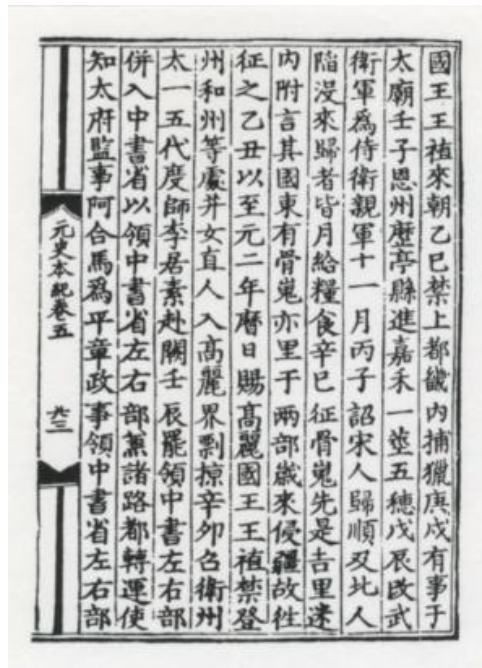 國王王禃來朝乙巳禁上都畿内捕獵庚戌有事于
太廟壬子恩州歷亭縣進嘉禾一莖五穗戊辰改武
衛軍爲侍衛親軍十一月丙子詔宋人歸順及北人
陷没來歸者皆月給糧食辛巳征骨嵬先是吉里迷
内附言其國東有骨嵬亦里于兩部歲來侵疆故往
征之乙丑以至元二年曆日賜高麗國王王禃禁登
州和州等處并女直人入高麗界剽掠辛卯召衛州
太一五代度師李居素赴闕壬辰罷領中書左右部
併入中書省以領中書省左右部兼諸路都轉運使
知太府監事阿合馬爲平章政事領中書省左右部
元史本紀卷五
九三